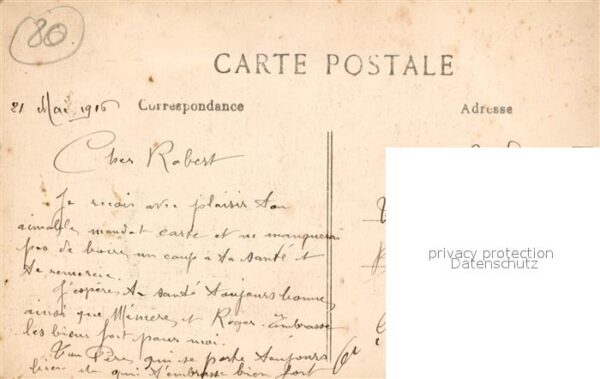 80.
CARTE POSTALE
21 Mai 1916 Correspondance
Adresse
Cher Robert
Je reçois avec plaisir ton
aimable mandat carte et ne manquerai
pas de boire un coup à ta santé et
te remercie.
J'espère ta santé toujours bonne,
ainsi que Mémère et Roger embrasse
les biens fort pour moi.
Ton Père qui se porte toujours
bien et qui t'embrasse bien fort
privacy protection
Datenschutz